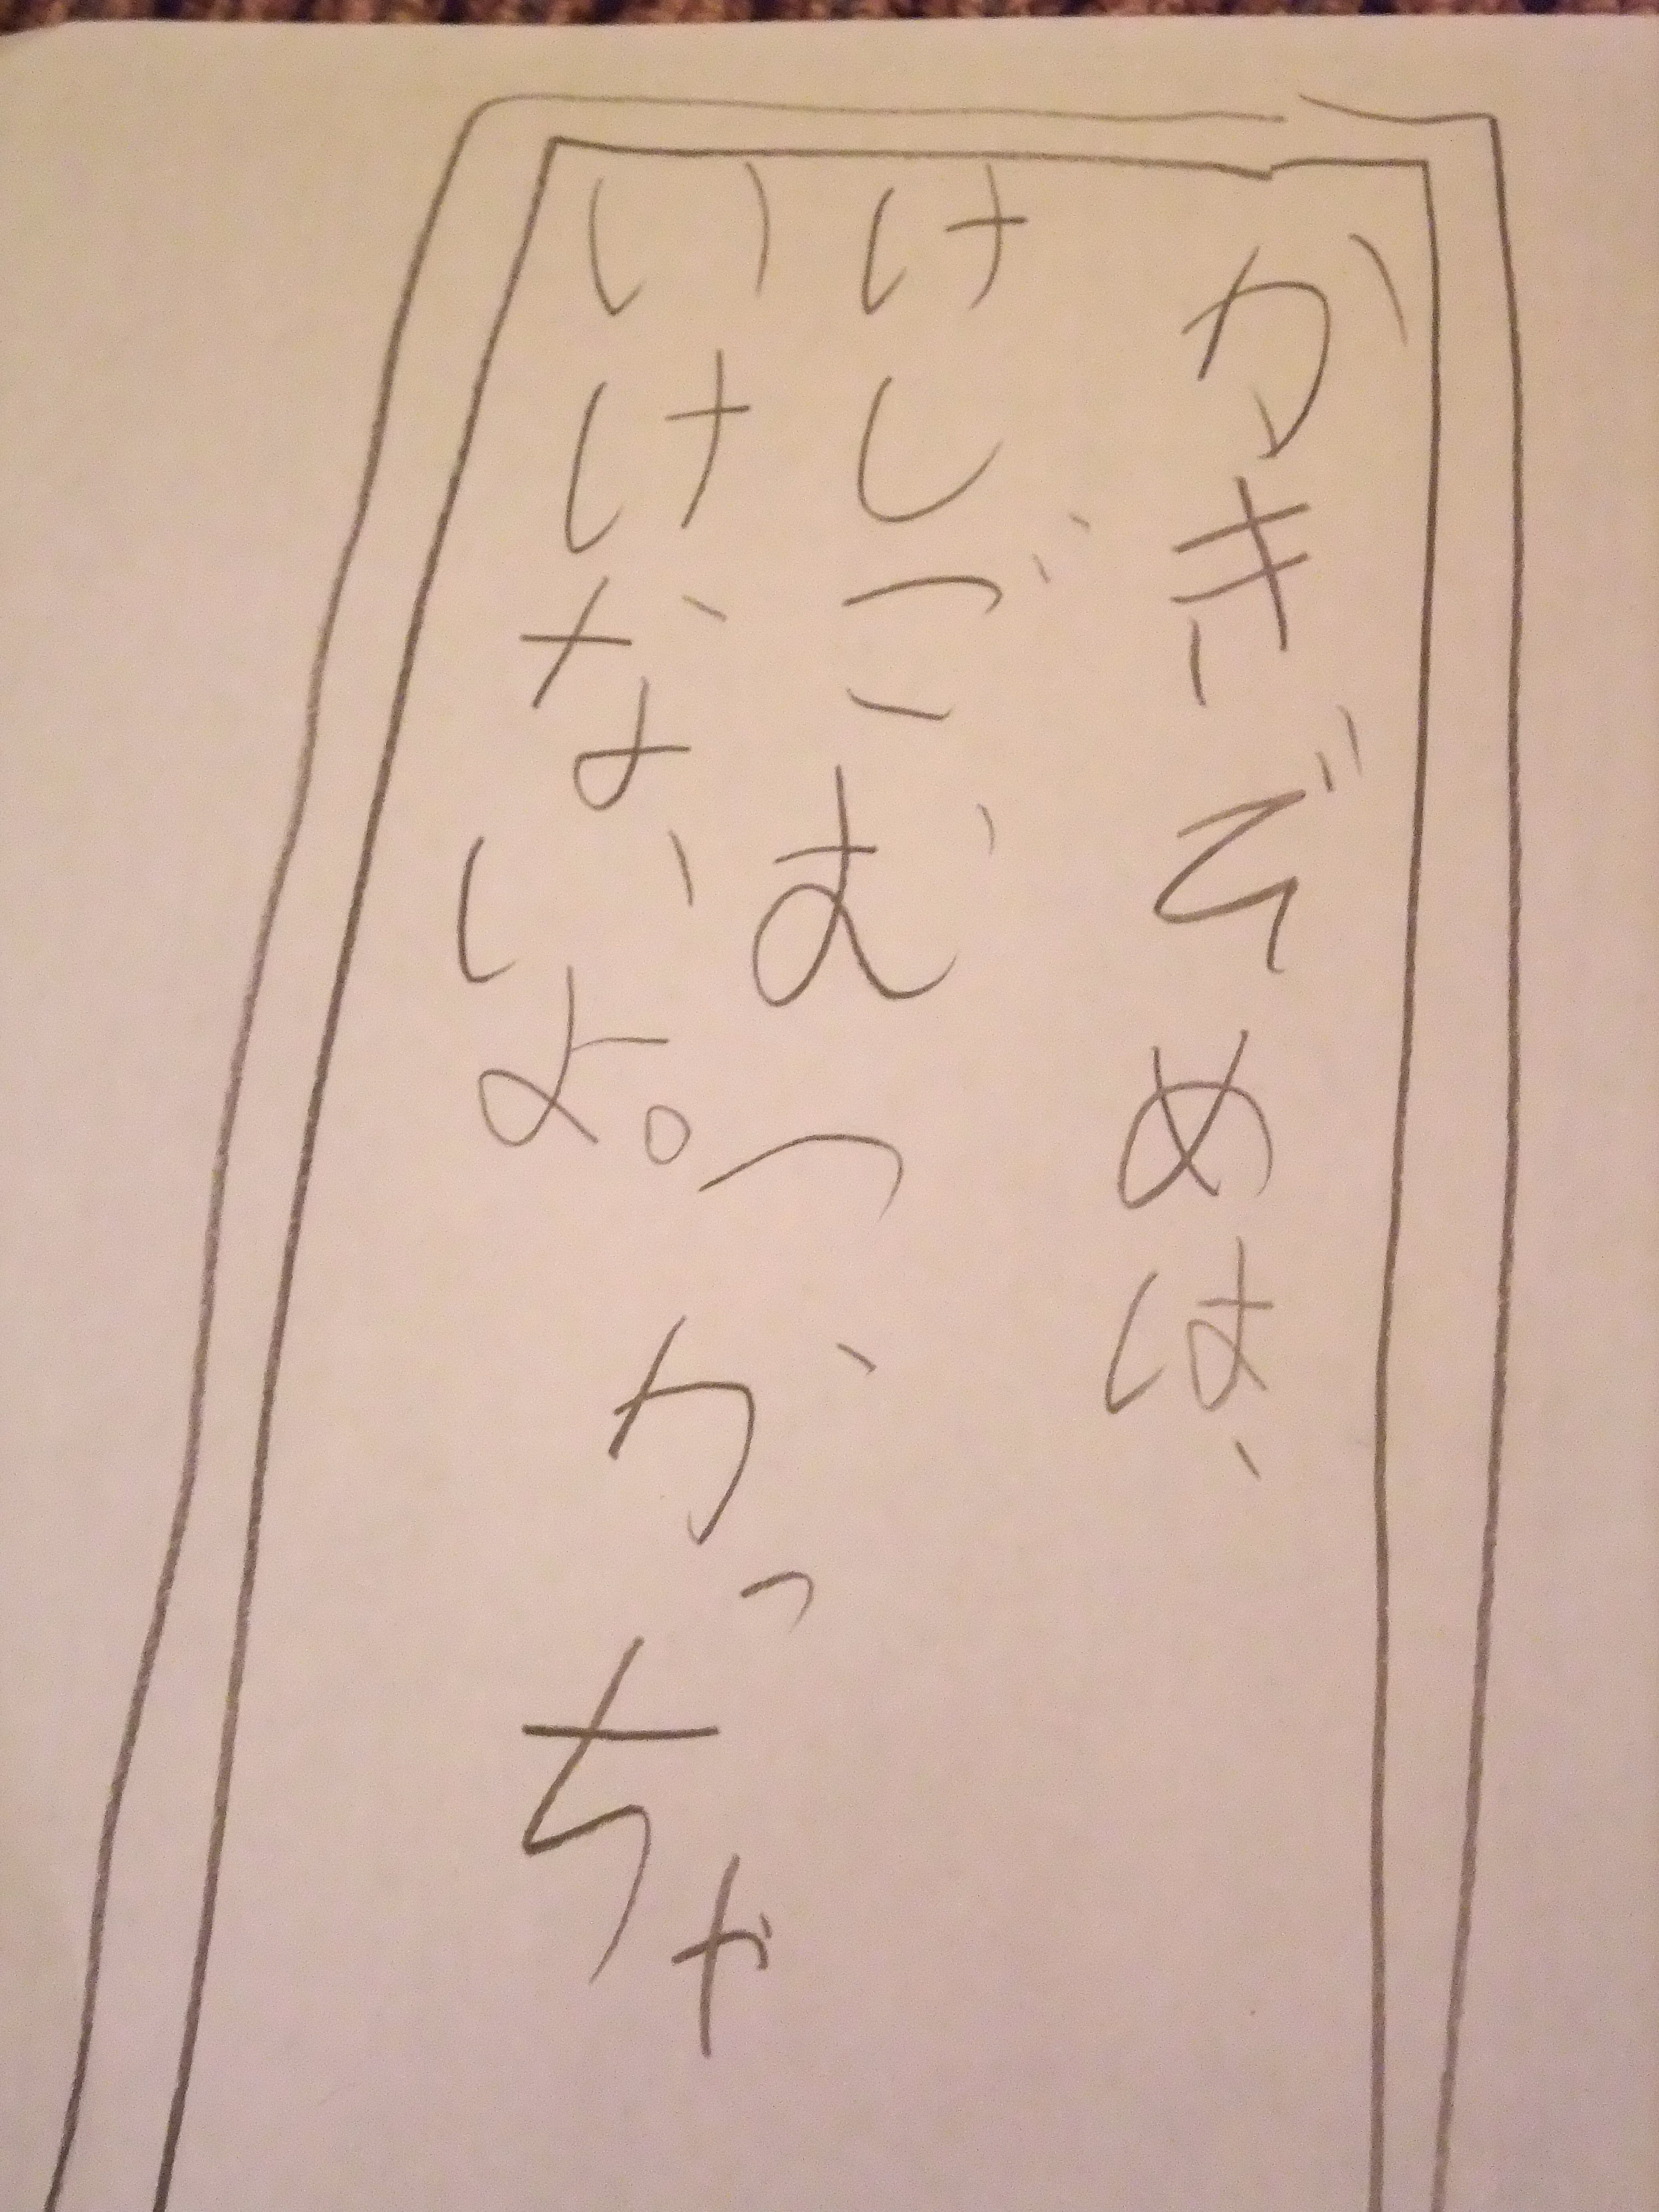 かきぞめは、
けしごむつかっちゃ
いけないよ。